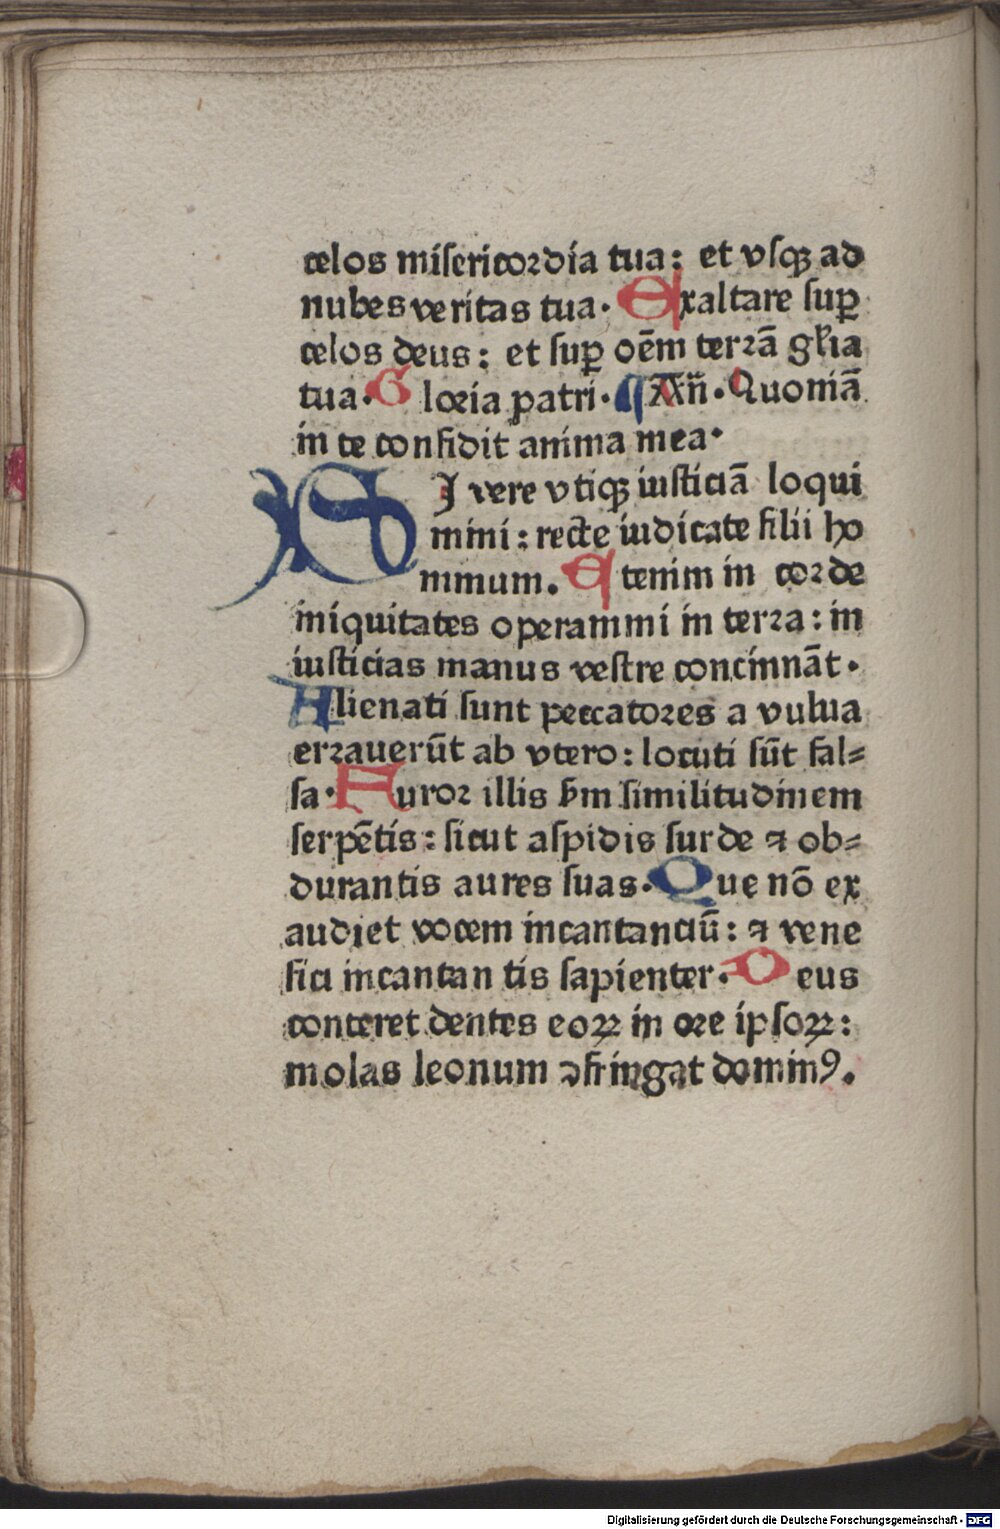 celos misericordia tua: et vsqꝫ ad
nubes veritas tua. Exaltare suꝑ
celos deus: et suꝑ oēm terrā gl̄ia
tua. Gloria patri. ¶ Añ. Quoniā
in te confidit anima mea.
SJ vere vtiqꝫ iusticiā loqui
mini: recte iudicate filii ho
minum. Etenim in corde
iniquitates operamini in terra: in
iusticias manus vestre concinnāt.
Alienati sunt peccatores a vulua
errauerūt ab vtero: locuti sūt fal⸗
sa. Furor illis ẜm similitudinem
serpētis: sicut aspidis surde ⁊ ob⸗
durantis aures suas. Que nō ex
audiet vocem incantanciū: ⁊ vene
fici incantan tis sapienter. Deus
conteret dentes eoꝝ in ore ipsoꝝ:
molas leonum ꝯfringat dominꝰ.
Digitalisierung gefördert durch die Deutsche Forschungsgemeinschaft - DFG